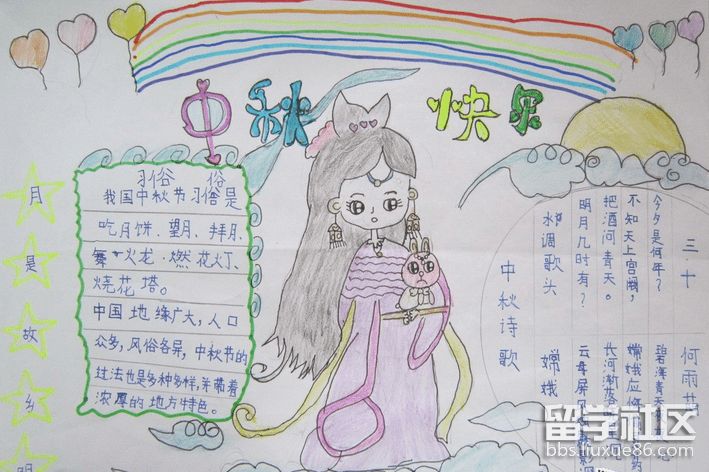 中秋快乐
月是故乡明
习俗 俗
我国中秋节习俗是
吃月饼、望月、拜月、
舞火龙、燃花灯、
烧花塔。
中国地缘广大,人口
众多,风俗各异,中秋节的
过法也是多种多样,并带着
浓厚的地方特色。
三十
何雨
今夕是何年?
不知天上宫阙,
把酒问青天。
明月几时有?
水调歌头
中秋诗歌
碧海青天
嫦娥应
长河渐
云母屏风
嫦娥
留学社区
bbs.liuxue86.com